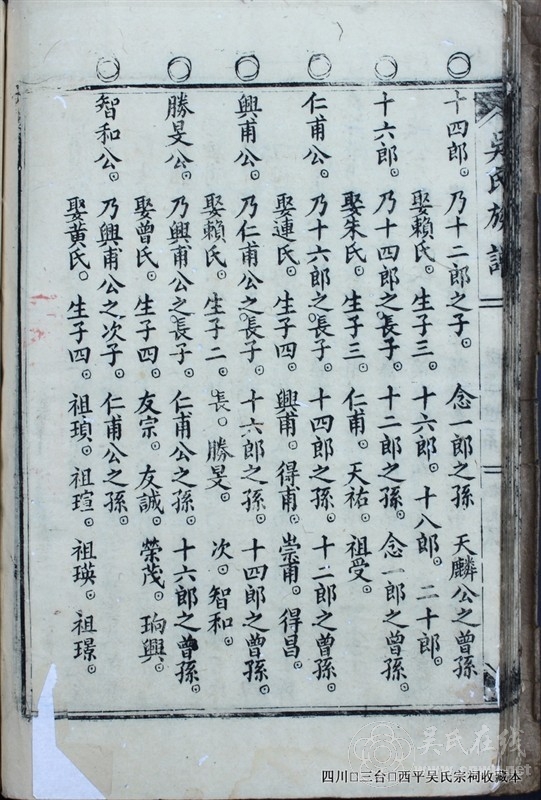 吳氏族譜
十四郎。乃十二郎之子。念一郎之孫 天麟公之曾孫
娶賴氏。生子三。十六郎。十八郎。二十郎。
十六郎。乃十四郎之長子。十二郎之孫。念一郎之曾孫。
娶朱氏。生子三。仁甫。天祐。祖受。
仁甫公。乃十六郎之長子。十四郎之孫。十二郎之曾孫。
娶連氏。生子四。興甫。得甫。崇甫。得昌。
興甫公。乃仁甫公之長子。十六郎之孫。十四郎之曾孫。
娶賴氏。生子二。長。勝旻。次。智和。
勝旻公。乃興甫公之長子。仁甫公之孫。十六郎之曾孫。
娶曾氏。生子四。友宗。友誠。榮茂。珦興。
智和公。乃興甫公之次子。仁甫公之孫。
娶黃氏。生子四。祖瑱。祖瑄。祖瑛。祖璟。
吴氏在线
四川□三台□西平吴氏宗祠收藏本